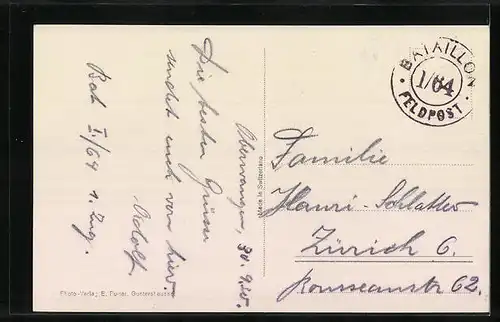 Oberwangen, 30.9.25.
Die besten Grüsse
sendet euch von hier.
Adolf.
Bat I/64 1. Zug.
Photo-Verlag E.
Made in Switzerland
BATAILLON
1/64
FELDPOST
Familie
Hauri-Schlatter
Zürich 6.
Rousseaustr 62.